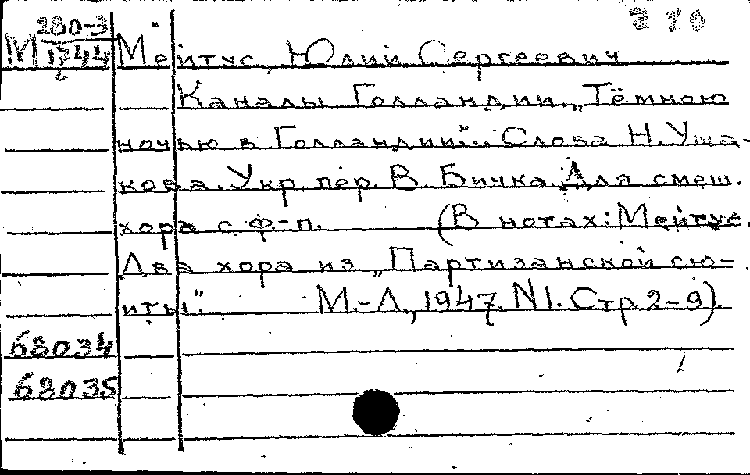 280-3
М 1744 Мейтус, Юлий Сергеевич
Каналы Голландии. „Тёмною
ночью в Голландии“... Слова Н. Уша-
кова. Укр. пер. В. Бичка. Для смеш.
хора с ф-п. (В нотах: Мейтус.
Два хора из „Партизанской сю-
иты“. М.-Л., 1947. N1. Стр 2-9).
68034
68035